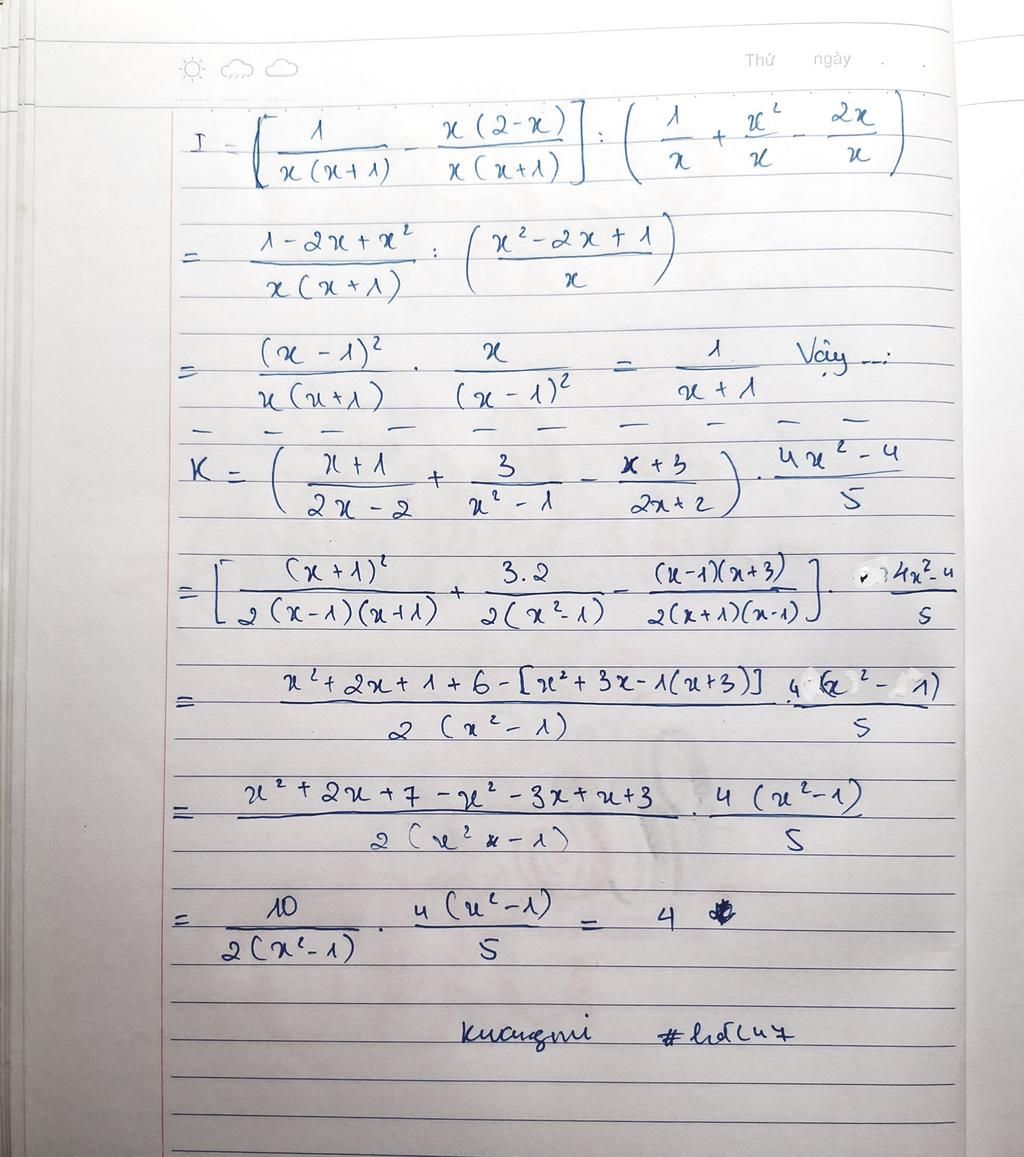 Thứ ngày . .
I = [ 1 / x(x+1) - x(2-x) / x(x+1) ] : ( 1/x + x²/x - 2x/x )
= 1-2x+x² / x(x+1) : ( x²-2x+1 / x )
= (x-1)² / x(x+1) . x / (x-1)² = 1 / x+1 Vậy ...:
K = ( x+1 / 2x-2 + 3 / x²-1 - x+3 / 2x+2 ) . 4x²-4 / 5
= [ (x+1)² / 2(x-1)(x+1) + 3.2 / 2(x²-1) - (x-1)(x+3) / 2(x+1)(x-1) ] . 4x²-4 / 5
= x²+2x+1+6-[x²+3x-1(x+3)] / 2(x²-1) . 4(x²-1) / 5
= x²+2x+7-x²-3x+x+3 / 2(x²-1) . 4(x²-1) / 5
= 10 / 2(x²-1) . 4(x²-1) / 5 = 4